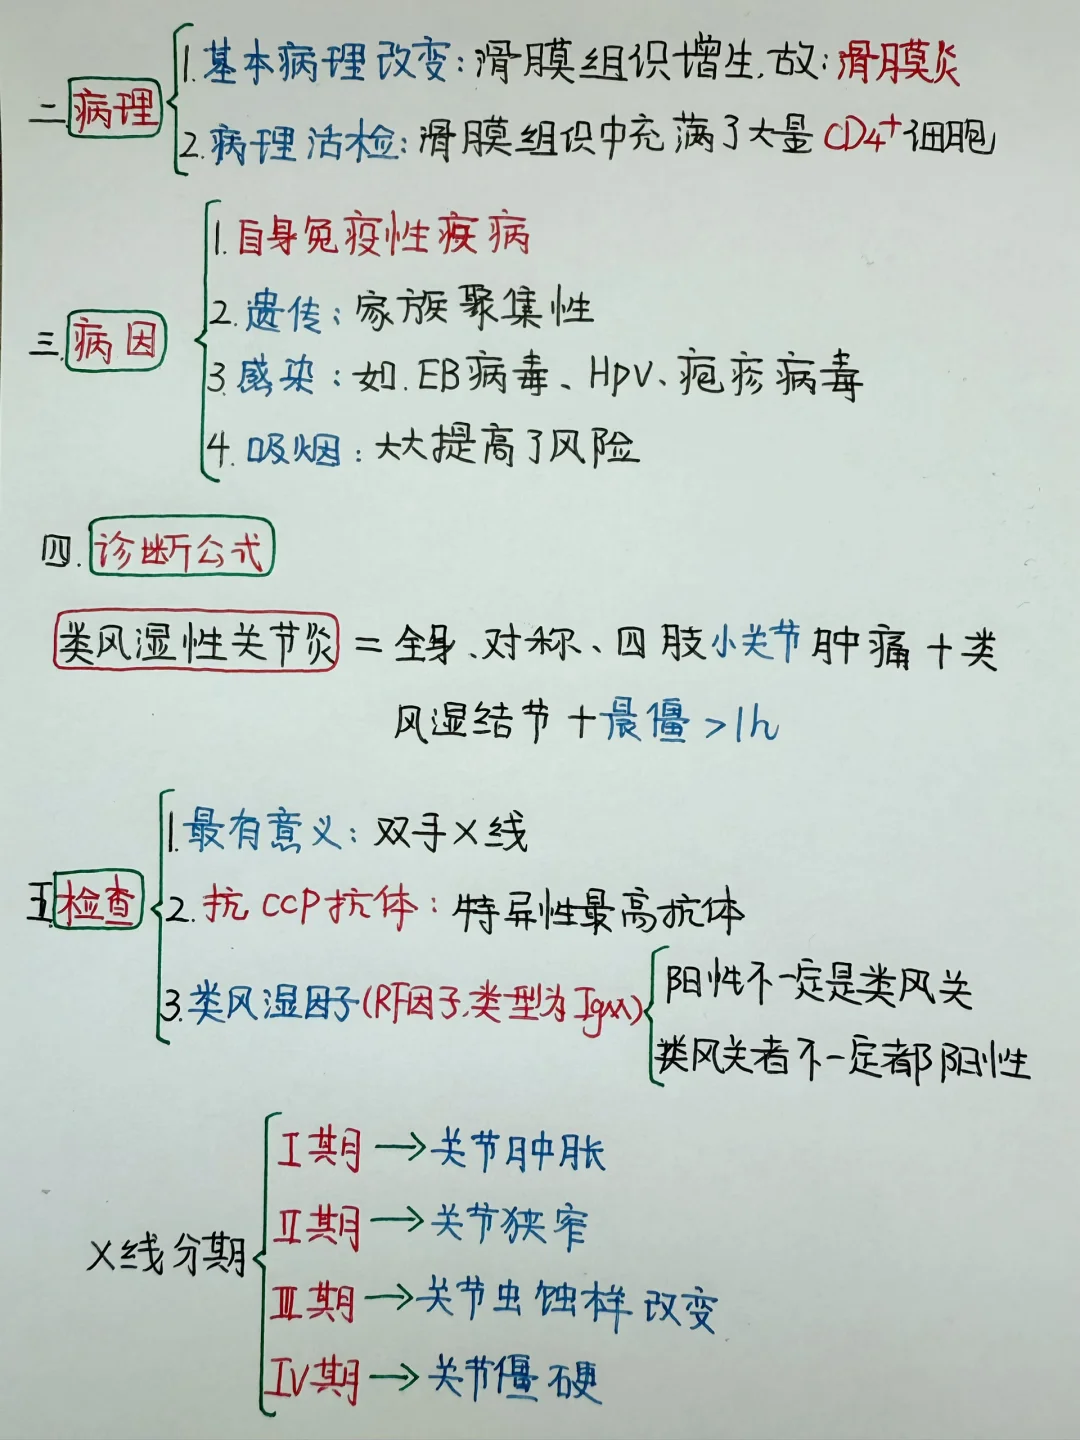 二.病理
1.基本病理改变:滑膜组织增生,故:滑膜炎
2.病理活检:滑膜组织中充满了大量CD4+细胞
三.病因
1.自身免疫性疾病
2.遗传:家族聚集性
3.感染:如.EB病毒、HpV、疱疹病毒
4.吸烟:大大提高了风险
四.诊断公式
类风湿性关节炎=全身、对称、四肢小关节肿痛+类
风湿结节+晨僵>1h
五.检查
1.最有意义:双手X线
2.抗CCP抗体:特异性最高抗体
3.类风湿因子(RF因子,类型为IgM)
阳性不一定是类风关
类风关者不一定都阳性
X线分期
I期→关节肿胀
II期→关节狭窄
III期→关节虫蚀样改变
IV期→关节僵硬